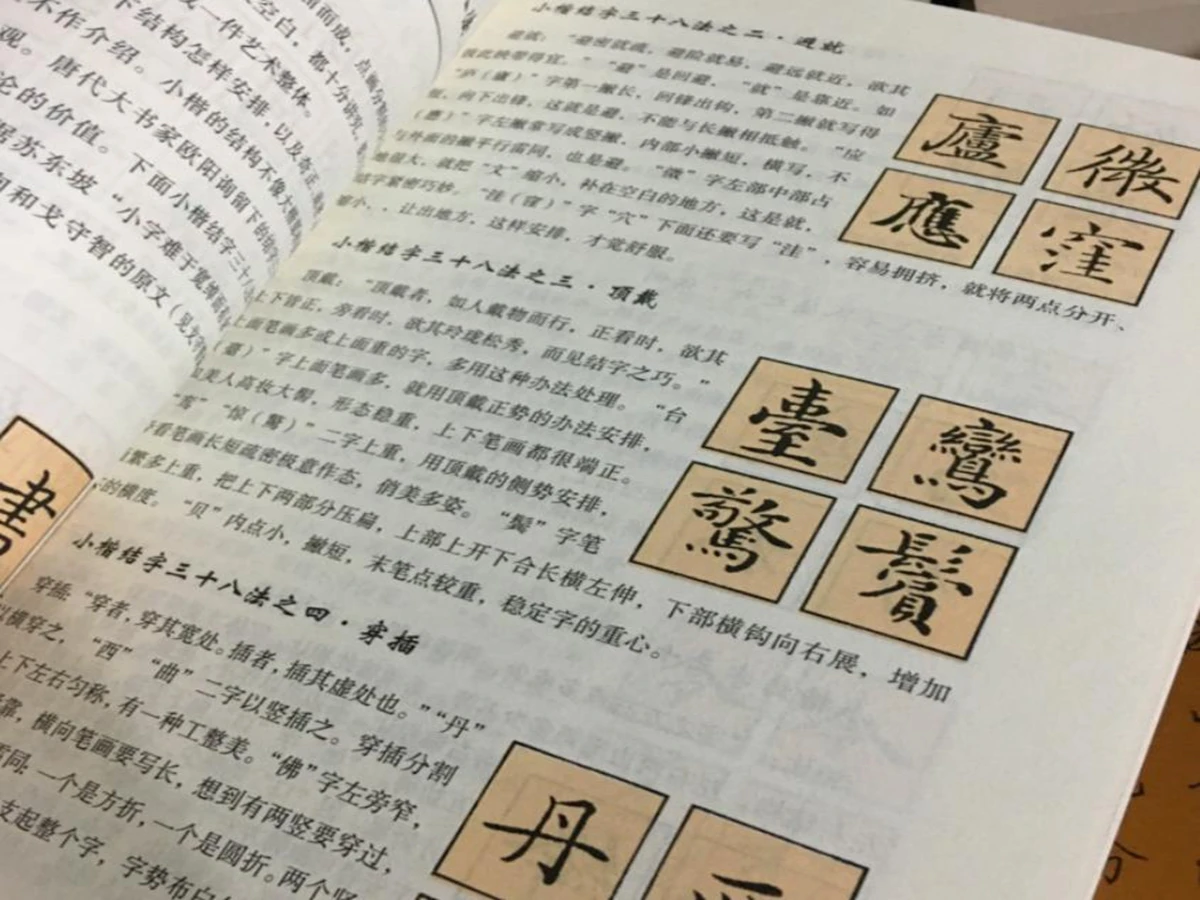 空白，都十分讲究，
一件艺术整体。
结构怎样安排，以及各正
不作介绍。小楷的结构不像大楷
观。唐代大书家欧阳询留下的
论的价值。下面小楷结字三十八
苏东坡“小字难于宽绰而有
和戈守智的原文（见文
書
小楷结字三十八法之二·避就
避就：“避密就疏，避险就易，避远就近，欲其
彼此映带得宜。”“避”是回避，“就”是靠近。如
“庐（廬）”字第一撇长，回锋出钩，第二撇就写得
短，向下出锋，这就是避，不能与长撇相抵触。“应
（應）”字左撇常写成竖撇，内部小撇短，横写，不
与外面的撇平行雷同，也是避。“微”字左部中部占
地很大，就把“文”缩小，补在空白的地方，这是就，
结字紧密巧妙。“洼（窪）”字“穴”下面还要写“洼”，容易拥挤，就将两点分开、
缩小，让出地方，这样安排，才觉舒服。
廬
微
應
窪
小楷结字三十八法之三·顶戴
顶戴：“顶戴者，如人戴物而行，正看时，欲其
上下皆正，旁看时，欲其玲珑松秀，而见结字之巧。”
上面笔画多或上面重的字，多用这种办法处理。“台
（臺）”字上面笔画多，就用顶戴正势的办法安排，
如美人高妆大髻，形态稳重，上下笔画都很端正。
“鸾”“惊（驚）”二字上重，用顶戴的侧势安排，
看笔画长短疏密极意作态，俏美多姿。“鬓”字笔
繁多上重，把上下两部分压扁，上部上开下合长横左伸，下部横钩向右展，增加
的横度。“贝”内点小，撇短，末笔点较重，稳定字的重心。
臺
鸞
驚
鬢
小楷结字三十八法之四·穿插
穿插：“穿者，穿其宽处。插者，插其虚处也。”“丹”
以横穿之，“西”“曲”二字以竖插之。穿插分割
上下左右匀称，有一种工整美。“佛”字左旁窄，
靠，横向笔画要写长，想到有两竖要穿过，
雷同：一个是方折，一个是圆折。两个竖
支起整个字，字势布白
丹